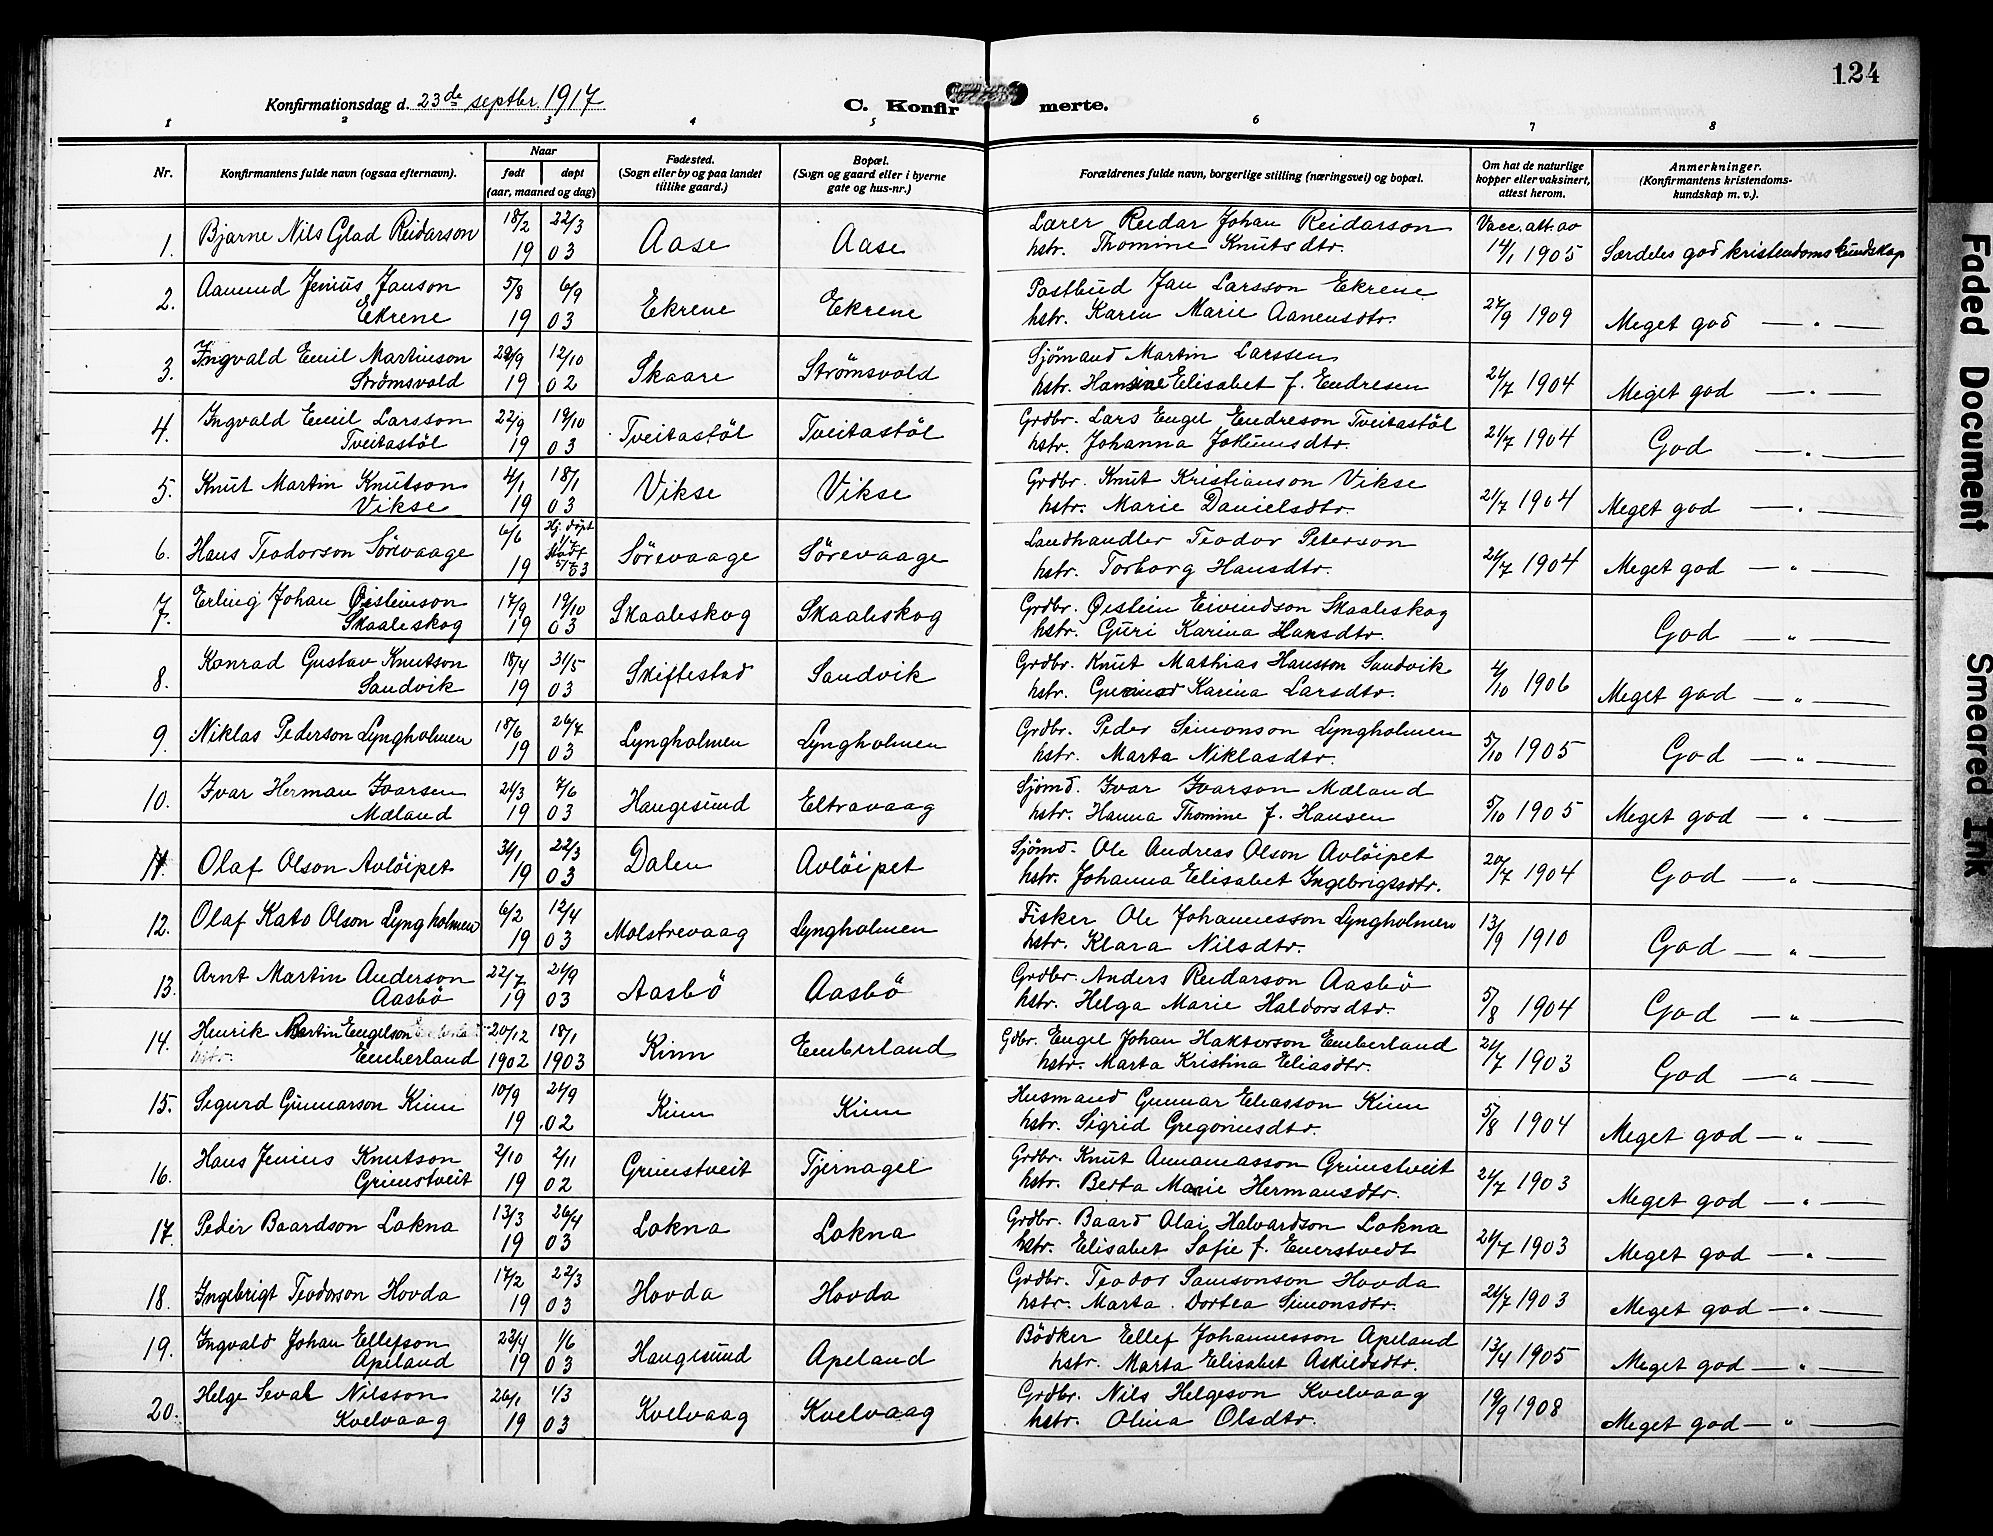 124
Konfirmationsdag d. 23de septbr. 1917
C. Konfirmerte.
1 2 3 4 5 6 7 8
Nr. Konfirmantens fulde navn (ogsaa efternavn). Naar født døpt (aar, maaned og dag) Fødested. (Sogn eller by og paa landet tillike gaard.) Bopæl. (Sogn og gaard eller i byerne gate og hus-nr.) Forældrenes fulde navn, borgerlige stilling (næringsvei) og bopæl. Om hat de naturlige kopper eller vaksinert, attest herom. Anmerkninger. (Konfirmantens kristendoms-kundskap m. v.).
1. Bjarne Nils Glad Reidarson 18/2 22/3 Aase Aase Lærer Reidar Johan Reidarson Vacc. att. av
19 03 hstr. Thomine Knutsdtr. 14/1 1905 Særdeles god kristendomskundskap
2. Aamund Jenius Janson 5/8 6/9 Ekrene Ekrene Postbud Jan Larsson Ekrene
Ekrene 19 03 hstr. Karen Marie Aanensdtr. 27/9 1909 Meget god — " —
3. Ingvald Emil Martinson 29/9 12/10 Skaare Strømsvold Sjömand Martin Larssen
Strømsvold 19 02 hstr. Hansine Elisabet f. Endresen 21/7 1904 Meget god — " —
4. Ingvald Emil Larsson 22/9 19/10 Tveitastöl Tveitastöl Grdbr. Lars Engel Endreson Tveitastöl
Tveitastöl 19 03 hstr. Johanna Jokumsdtr. 21/7 1904 God — " —
5. Knut Martin Knutson 4/1 18/1 Vikse Vikse Grdbr. Knut Kristianson Vikse
Vikse 19 03 hstr. Marie Danielsdtr. 21/7 1904 Meget god — " —
6. Hans Teodorson Sörevaage 6/6 Hj. døpt Sörevaage Sörevaage Landhandler Teodor Peterson
19 03 hstr. Torborg Hansdtr. 21/7 1904 Meget god — " —
7. Erling Johan Øisteinson 17/9 19/10 Skaaleskog Skaaleskog Grdbr. Øistein Eivindson Skaaleskog
Skaaleskog 19 03 hstr. Guri Karina Hansdtr. God — " —
8. Konrad Gustav Knutson 18/4 31/5 Skiftestad Sandvik Grdbr. Knut Mathias Hansson Sandvik
Sandvik 19 03 hstr. Karina Larsdtr. 4/10 1906 Meget god — " —
9. Niklas Pederson Lyngholmen 18/6 26/7 Lyngholmen Lyngholmen Grdbr. Peder Simonson Lyngholmen
19 03 hstr. Marta Niklasdtr. 5/10 1905 God — " —
10. Ivar Herman Ivarsen 21/3 7/6 Haugesund Eltravaag Sjömd. Ivar Ivarson Mæland
Mæland 19 03 hstr. Hanna Thomine f. Hansen 5/10 1905 Meget god — " —
11. Olaf Olson Avlöipet 31/1 22/3 Dalen Avlöipet Sjömd. Ole Andreas Olson Avlöipet
19 03 hstr. Johanna Elisabet Ingebrigtsdtr. 20/7 1904 God — " —
12. Olaf Kato Olson Lyngholmen 6/2 12/4 Molstrevaag Lyngholmen Fisker Ole Johannesson Lyngholmen
19 03 hstr. Klara Nilsdtr. 13/9 1910 God — " —
13. Arnt Martin Anderson 22/7 20/9 Aasbö Aasbö Grdbr. Anders Reidarson Aasbö
Aasbö 19 03 hstr. Helga Marie Haldorsdtr. 5/8 1904 God — " —
14. Henrik Martin Engelson 20/12 18/1 Kinn Emberland Gdbr. Engel Johan Haktorson Emberland
Emberland 1902 1903 hstr. Marta Kristina Eliasdtr. 21/7 1903 God — " —
15. Sigurd Gunnarson Kinn 10/9 21/9 Kinn Kinn Husmand Gunnar Eliasson Kinn
19 02 hstr. Sigrid Gregoriusdtr. 5/8 1904 Meget god — " —
16. Hans Jenius Knutson 2/10 2/11 Grimstveit Tjernagel Grdbr. Knut Annamasson Grimstveit
Grimstveit 19 02 hstr. Berta Marie Hermansdtr. 21/7 1903 Meget god — " —
17. Peder Baardson Lokna 13/3 26/4 Lokna Lokna Grdbr. Baard Olai Halvardson Lokna
19 03 hstr. Elisabet Sofie f. Enerstvedt 21/7 1903 Meget god — " —
18. Ingebrigt Teodorson Hovda 17/2 22/3 Hovda Hovda Grdbr. Teodor Samsonson Hovda
19 03 hstr. Marta Dortea Simonsdtr. 21/7 1903 Meget god — " —
19. Ingvald Johan Ellefson 23/4 1/6 Haugesund Apeland Bödker Ellef Johannesson Apeland
Apeland 19 03 hstr. Marta Elisabet Askildsdtr. 13/4 1905 Meget god — " —
20. Helge Seval Nilsson 26/1 1/3 Kvelvaag Kvelvaag Grdbr. Nils Helgeson Kvelvaag
Kvelvaag 19 03 hstr. Olina Olsdtr. 19/9 1908 Meget god — " —
Faded Document
Smeared Ink